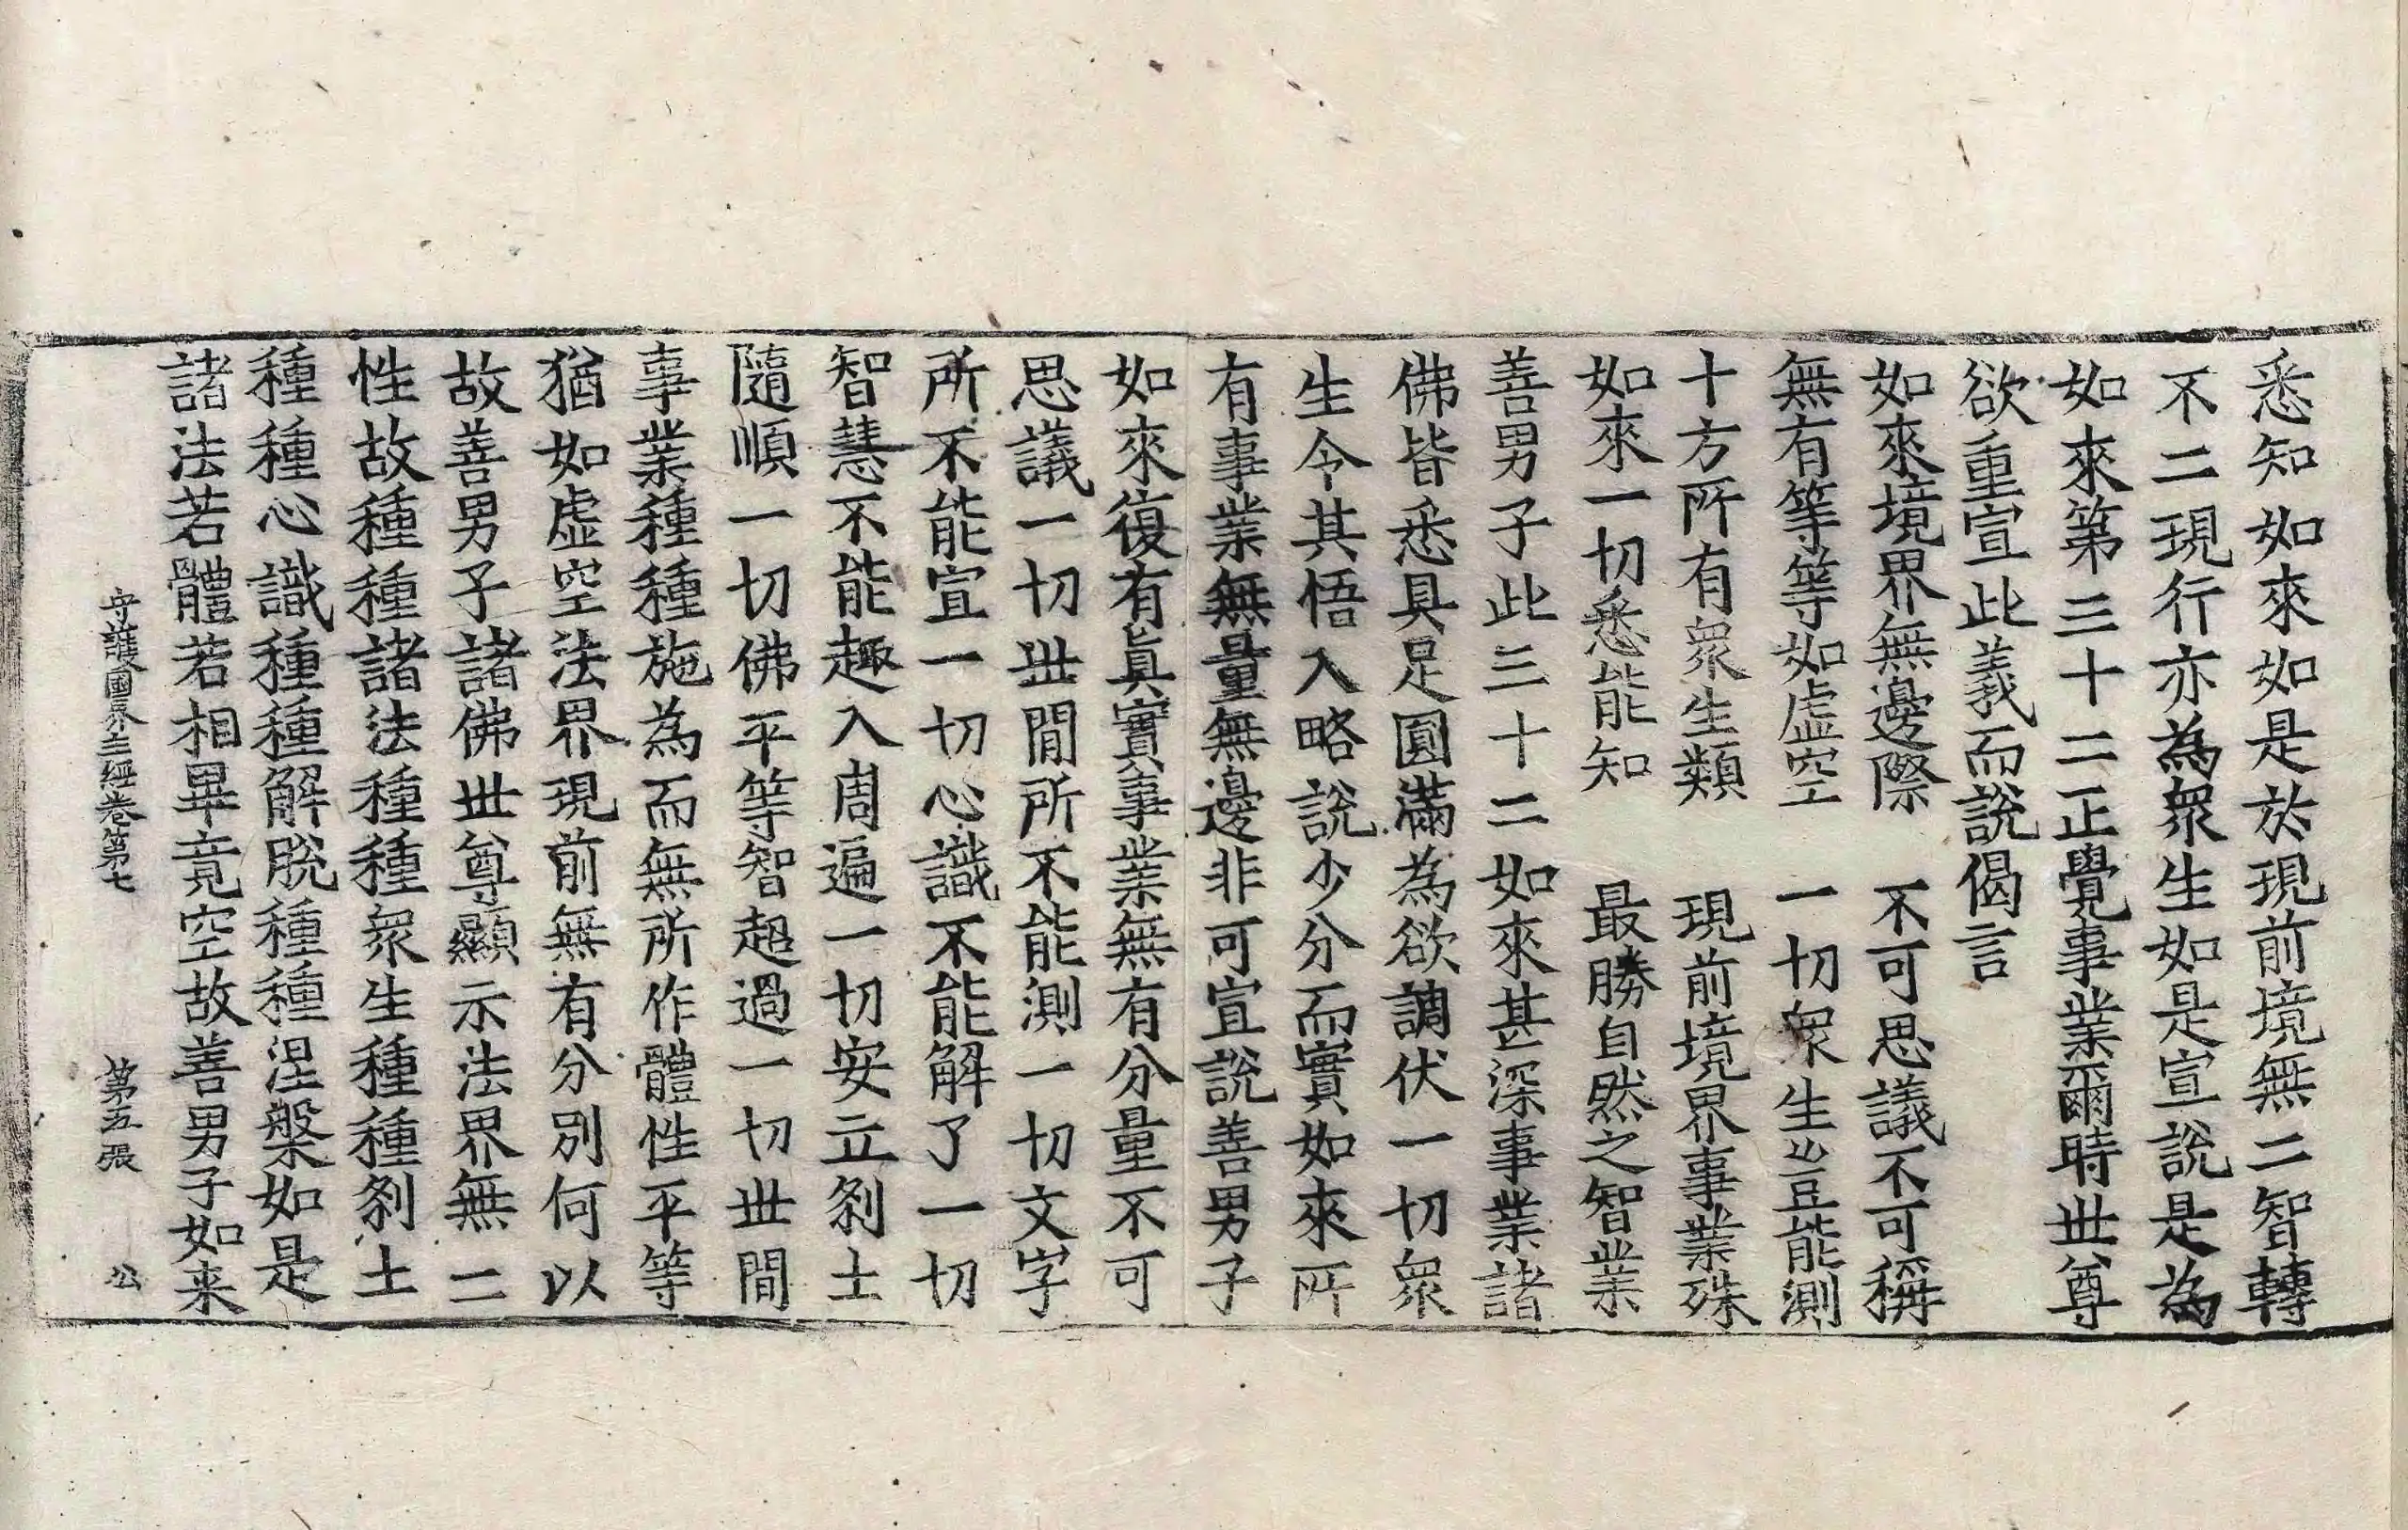 悉知如來如是於現前境無二智轉
不二現行亦為衆生如是宣說是為
如來第三十二正覺事業爾時世尊
欲重宣此義而說偈言
如來境界無邊際　不可思議不可稱
無有等等如虛空　一切衆生豈能測
十方所有衆生類　現前境界事業殊
如來一切悉能知　最勝自然之智業
善男子此三十二如來甚深事業諸
佛皆悉具足圓滿為欲調伏一切衆
生令其悟入略說少分而實如來所
有事業無量無邊非可宣說善男子
如來復有眞實事業無有分量不可
思議一切世間所不能測一切文字
所不能宣一切心識不能解了一切
智慧不能趣入周遍一切安立剎土
隨順一切佛平等智超過一切世間
事業種種施為而無所作體性平等
猶如虛空法界現前無有分別何以
故善男子諸佛世尊顯示法界無二
性故種種諸法種種衆生種種剎土
種種心識種種解脫種種涅槃如是
諸法若體若相畢竟空故善男子如来
守護國界主經卷第七　第五張　公